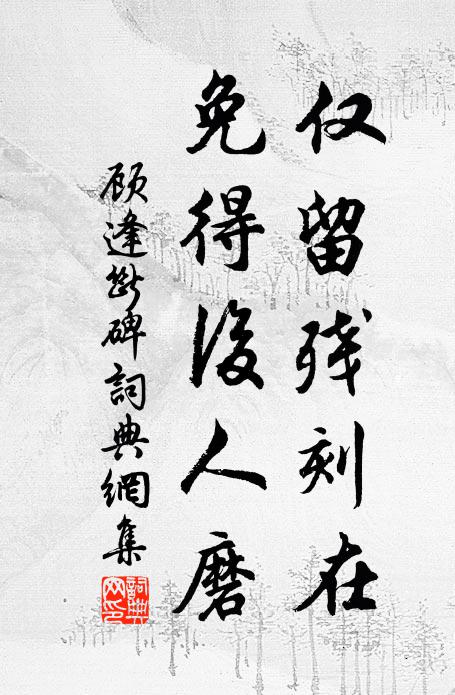 仅留残刻在
免得後人磨
顾逢断碑詞典網集
詞典網印